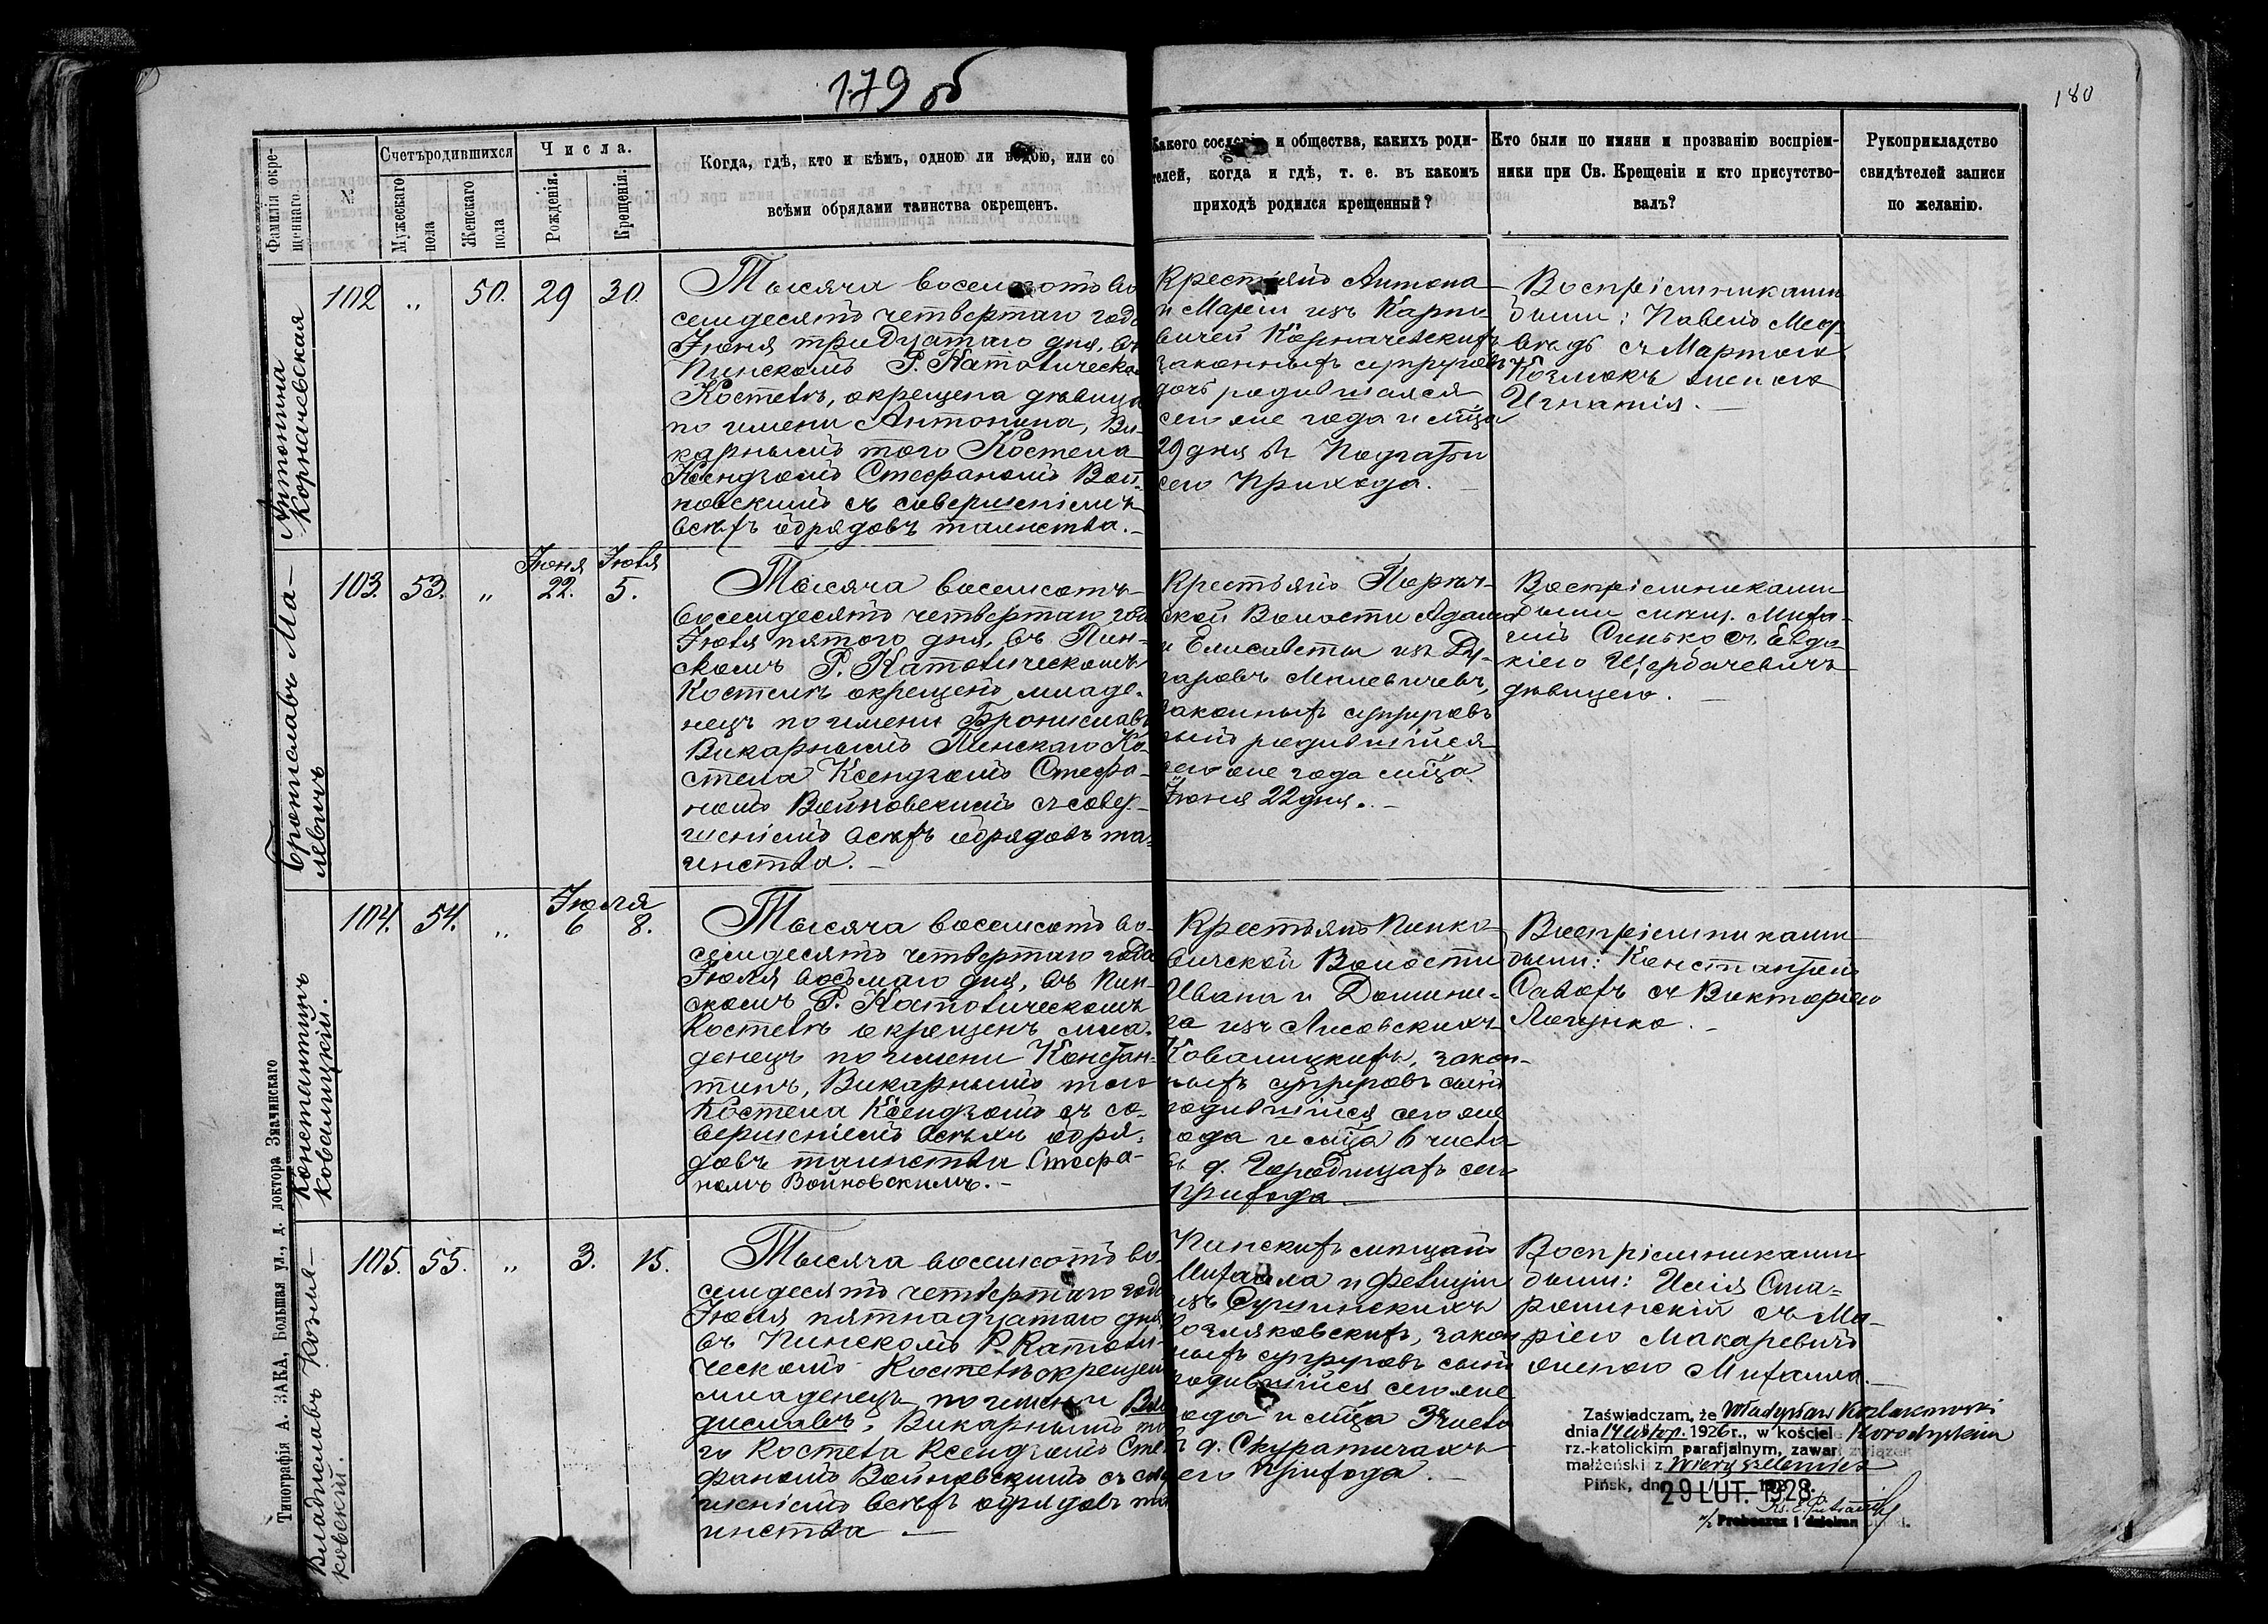 179 об
180
Фамилія окре-
щеннаго.
№
Счетъ родившихся
Мужескаго
пола
Женскаго
пола
Числа.
Рожденія.
Крещенія.
Когда, гдѣ, кто и кѣмъ, одною ли водою, или со
всѣми обрядами таинства окрещенъ.
Какого сословія и общества, какихъ роди-
телей, когда и гдѣ, т. е. въ какомъ
приходѣ родился крещенный?
Кто были по имяни и прозванію воспріем-
ники при Св. Крещеніи и кто присутство-
валъ?
Рукоприкладство
свидѣтелей записи
по желанію.
Антонина
Корначевская
102 „ 50. 29 30.
Тысяча восемсотъ во
семдесятъ четвертаго года
Іюня тридцатаго дня, въ
Пинскомъ Р. Католическо
Костелѣ, окрещена дѣвица
по имени Антонина, Ви-
карнымъ того Костела
Ксендзомъ Стефаномъ Вой-
новскимъ съ совершеніемъ
всѣхъ обрядовъ таинства.
Крестьянъ Антона
и Маріи изъ Карпо-
вичей Корначевскихъ
законныхъ супруговъ
дочь родившаяся
сего же года и мѣца
29 дня въ
сего Прихода.
Воспріемниками
были: Павелъ Мед-
вѣдь съ Мартою
Козлюкъ женою
Игнатія.
Брониславъ Ми-
левичъ
103. 53. „
Іюня 22. Іюля 5.
Тысяча восемсотъ
восемдесятъ четвертаго года
Іюля пятого дня, въ Пин-
скомъ Р. Католическомъ
Костелѣ окрещенъ младе-
нецъ по имени Брониславъ
Викарнымъ Пинскаго Ко-
стела Ксендзомъ Стефа-
номъ Войновскимъ съ совер-
шеніемъ всѣхъ обрядовъ та-
инства.
Крестьянъ Порѣч-
ской Волости Адама
и Елисаветы изъ
Милевичевъ,
законныхъ супруговъ
сынъ родившійся
сего же года мѣца
Іюня 22 дня.
Воспріемниками
были Миха-
илъ Синько съ Евдо-
кіею Щербачевичъ
дѣвицею.
Константинъ
Ковалицкій.
104. 54. „
Іюля
6 8.
Тысяча восемсотъ во-
семдесятъ четвертаго года
Іюля восьмаго дня, въ Пин-
скомъ Р. Католическомъ
Костелѣ окрещенъ мла-
денецъ по имени Констан-
тинъ, Викарнымъ того
Костела Ксендзомъ съ со-
вершеніемъ всѣхъ обря-
довъ таинства Стефа-
номъ Войновскимъ.
Крестьянъ Пинко-
вичской Волости
Ивана и Домини-
ка изъ Лисовскихъ
Ковалицкихъ, закон-
ныхъ супруговъ сынъ
родившійся сего же
года и мѣца 6 числа
въ д. Городищахъ сего
Прихода
Воспріемниками
были: Константинъ
съ Викторіею
Владиславъ Козля-
ковскій.
105. 55. „ 3. 15.
Тысяча восемсотъ во-
семдесятъ четвертаго года
Іюля пятнадцатаго дня
въ Пинскомъ Р. Католи-
ческомъ Костелѣ окрещенъ
младенецъ по имени Вла
диславъ, Викарнымъ то
го Костела Ксендзомъ Сте
фаномъ Войновскимъ съ сове
шеніемъ всѣхъ обрядовъ та
инства
Пинскихъ мѣщанъ
Михаила и Фелиціи
изъ Сушинскихъ
Козляковскихъ, закон
ныхъ супруговъ сынъ
родившійся сего же
года и мѣца 3 числа
въ д. Скуратичахъ
сего Прихода.
Воспріемниками
были: Илія
съ Ма-
ріею Макаревичъ
женою Михаила.
Zaświadczam, że Władysław Kozlakowski
dnia 14 listop. 1926 r., w kościele Horodyskim
rz.-katolickim parafjalnym, zawarł związek
małżeński z
Pińsk, dn. 29 LUT. 1928 r.
Proboszcz i dziekan
Типографія А. ЗАКА, Большая ул., д. доктора Значинскаго